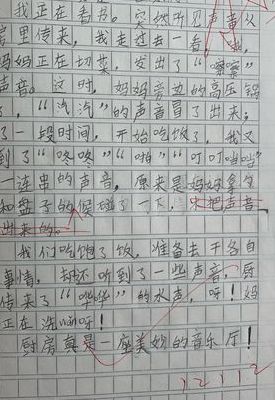 我正在看书。突然听见声音从
房里传来，我走过去一看，
妈妈正在切菜，发出了“嚓嚓”
声音。这时，妈妈旁边的高压锅
，“汽汽”的声音冒了出来。
了一段时间，开始吃饭了，我又
到了“咚咚”“啪”“叮叮当当”
一连串的声音，原来是妈妈拿
和盘子的候碰了一下，才把声音
出来的。
我们吃饱了饭，准备去干各自
事情，却还听到了一些声音，厨
传来了“哗哗”的水声，呀！妈
正在洗碗呀！
厨房真是一座美妙的音乐厅！
12112